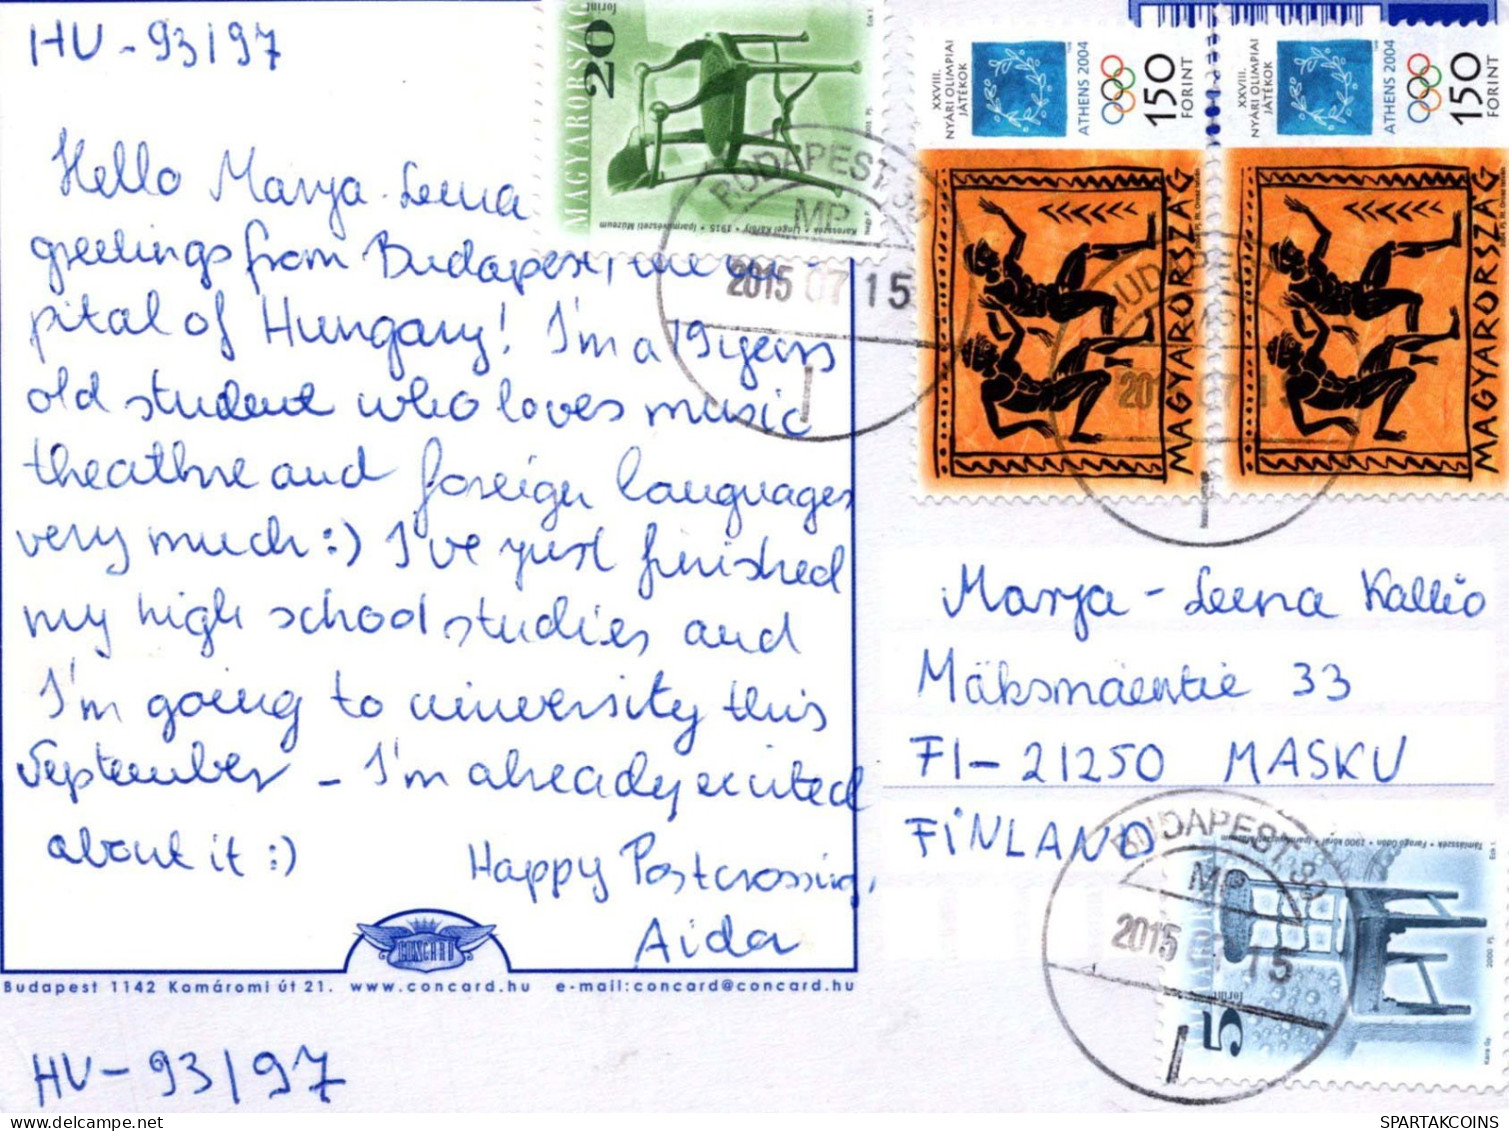 HU-93197
Hello Marja-Leena
greetings from Budapest, the ca-
pital of Hungary! I'm a 19 years
old student who loves music
theathre and foreign languages
very much :) I've just finished
my high school studies and
I'm going to university this
September - I'm already excited
about it :)
Happy Postcrossing,
Aida
CONCARD
Budapest 1142 Komáromi út 21. www.concard.hu e-mail:concard@concard.hu
HU-93197
MAGYARORSZÁG
20
forint
Karosszék • Lingel Károly • 1915 • Iparművészeti Múzeum
BUDAPEST
MP
2015 07 15
XXVIII.
NYÁRI OLIMPIAI
JÁTÉKOK
ATHENS 2004
150
FORINT
MAGYARORSZÁG
XXVIII.
NYÁRI OLIMPIAI
JÁTÉKOK
ATHENS 2004
150
FORINT
MAGYARORSZÁG
Marja-Leena Kallio
Mäksmäentie 33
FI-21250 MASKU
FINLAND
BUDAPEST
MP
2015 15
Támlásszék • Faragó Ödön • 1900 körül • Iparművészeti Múzeum
5
forint
SPARTAKCOINS